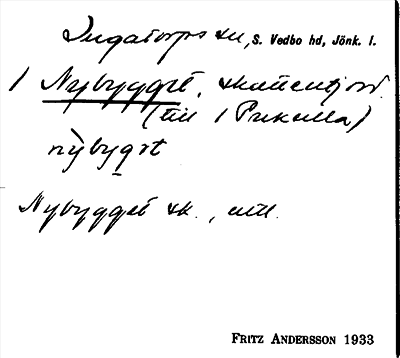 Ingatorps sn, S. Vedbo hd, Jönk. l.
1 Nybygget, skattentjord
(till 1 Pukulla)
nỳbygət
Nybygget sk., uttl.
FRITZ ANDERSSON 1933